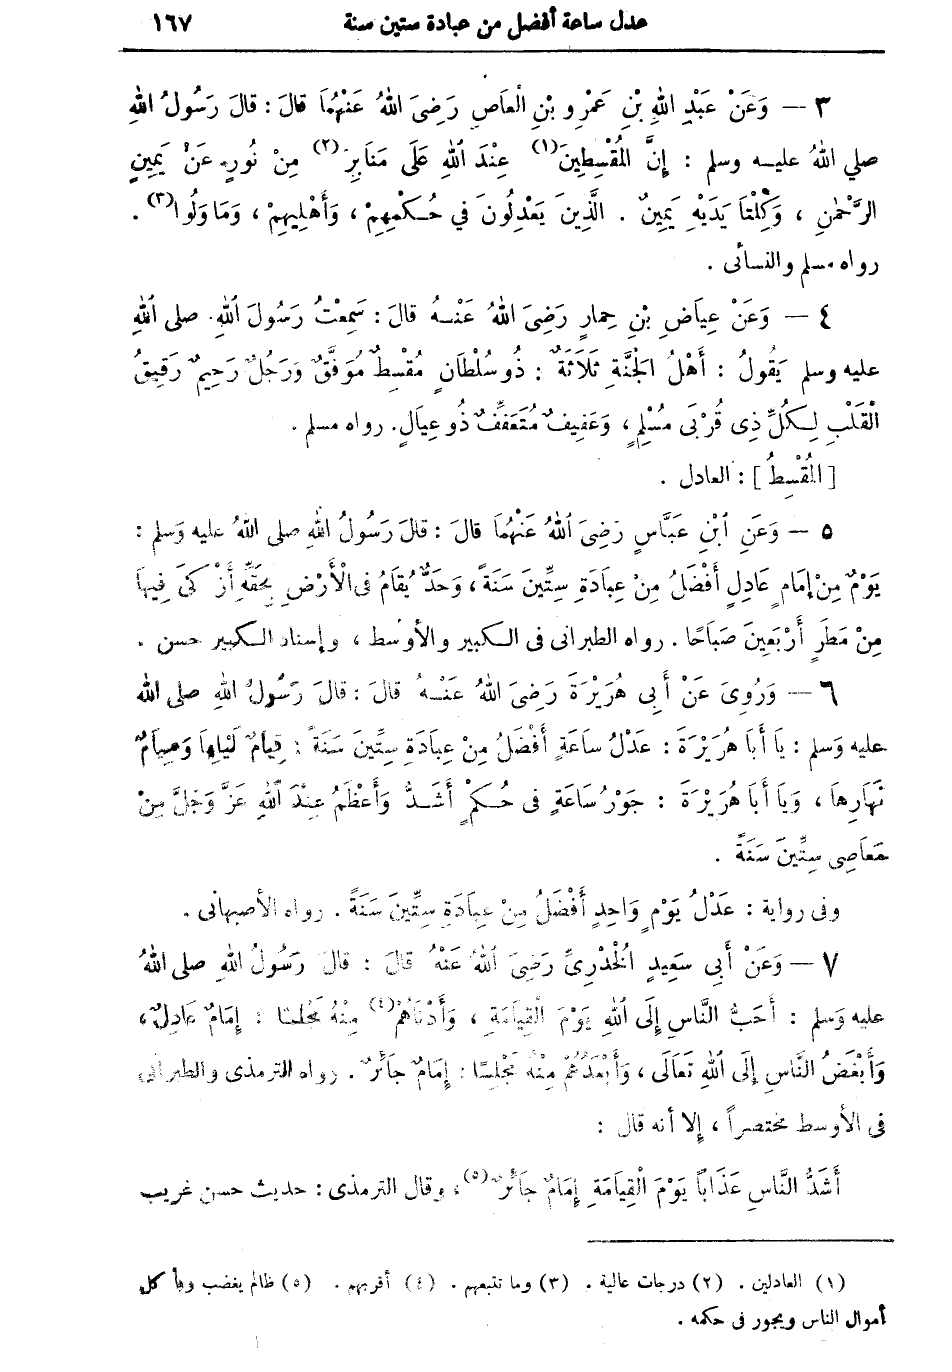 عدل ساعة أفضل من عبادة ستين سنة ١٦٧
٣ — وَعَنْ عَبْدِ اللهِ بْنِ عَمْرِو بْنِ الْعَاصِ رَضِيَ اللهُ عَنْهُمَا قالَ : قالَ رَسُولُ اللهِ
صلى اللهُ عليـه وسلم : إِنَّ الْمُقْسِطِينَ(١) عِنْدَ اللهِ عَلَى مَنَابِرَ(٢) مِنْ نُورٍ عَنْ يَمِينِ
الرَّحْمٰنِ ، وَكِلْتَا يَدَيْهِ يَمِينٌ . الَّذِينَ يَعْدِلُونَ فِي حُكْمِهِمْ ، وَأَهْلِيهِمْ ، وَمَا وَلُوا(٣) .
رواه مسلم والنسائى .
٤ — وَعَنْ عِيَاضِ بْنِ حِمَارٍ رَضِيَ اللهُ عَنْـهُ قالَ : سَمِعْتُ رَسُولَ اللهِ صلى اللهِ
عليه وسلم يَقُولُ : أَهْلُ الْجَنَّةِ ثَلَاثَةٌ : ذُو سُلْطَانٍ مُقْسِطٌ مُوَفَّقٌ وَرَجُلٌ رَحِيمٌ رَقِيقُ
الْقَلْبِ لِكُلِّ ذِى قُرْبَى مُسْلِمٍ ، وَعَفِيفٌ مُتَعَفِّفٌ ذُو عِيَالٍ. رواه مسلم .
[ الْمُقْسِطُ ] : العادل .
٥ — وَعَنِ ابْنِ عَبَّاسٍ رَضِيَ اللهُ عَنْهُمَا قالَ : قالَ رَسُولُ اللهِ صلى اللهُ عليه وَسلم :
يَوْمٌ مِنْ إِمَامٍ عَادِلٍ أَفْضَلُ مِنْ عِبَادَةِ سِتِّينَ سَنَةً ، وَحَدٌّ يُقَامُ فى الْأَرْضِ بِحَقِّهِ أَزْكَى فِيهَا
مِنْ مَطَرِ أَرْبَعِينَ صَبَاحًا . رواه الطبرانى فى الكبير والأوسط ، وإسناد الكبير حسن .
٦ — وَرُوِىَ عَنْ أَبِى هُرَيْرَةَ رَضِىَ اللهُ عَنْـهُ قالَ : قالَ رَسُولُ اللهِ صلى الله
عليه وَسلم : يَا أَبَا هُرَيْرَةَ : عَدْلُ سَاعَةٍ أَفْضَلُ مِنْ عِبَادَةِ سِتِّينَ سَنَةً : قِيَامُ لَيْلِهَا وَصِيَامُ
نَهَارِهَا ، وَيَا أَبَا هُرَيْرَةَ : جَوْرُ سَاعَةٍ فى حُكْمٍ أَشَدُّ وَأَعْظَمُ عِنْدَ اللهِ عَزَّ وَجَلَّ مِنْ
مَعَاصِى سِتِّينَ سَنَةً .
وفى رواية : عَدْلُ يَوْمٍ وَاحِدٍ أَفْضَلُ مِنْ عِبَادَةِ سِتِّينَ سَنَةً . رواه الأصبهانى .
٧ — وَعَنْ أَبِي سَعِيدٍ الْخُدْرِىِّ رَضِىَ اللهُ عَنْهُ قالَ : قالَ رَسُولُ اللهِ صلى اللهُ
عليه وَسلم : أَحَبُّ النَّاسِ إِلَى اللهِ يَوْمَ الْقِيَامَةِ ، وَأَدْنَاهُمْ(٤) مِنْهُ مَجْلِسًا : إِمَامٌ عَادِلٌ ،
وَأَبْغَضُ النَّاسِ إِلَى اللهِ تَعَالَى ، وَأَبْعَدُهُمْ مِنْهُ مَجْلِسًا : إِمَامٌ جَائِرٌ . رواه الترمذى والطبرانى
فى الأوسط مختصراً ، إلا أنه قال :
أَشَدُّ النَّاسِ عَذَابًا يَوْمَ الْقِيَامَةِ إِمَامٌ جَائِرٌ(٥) ، وقال الترمذى : حديث حسن غريب
(١) العادلين . (٢) درجات عالية . (٣) وما تتبعهم . (٤) أقربهم . (٥) ظالم يغضب ويأكل
أموال الناس ويجور فى حكمه .